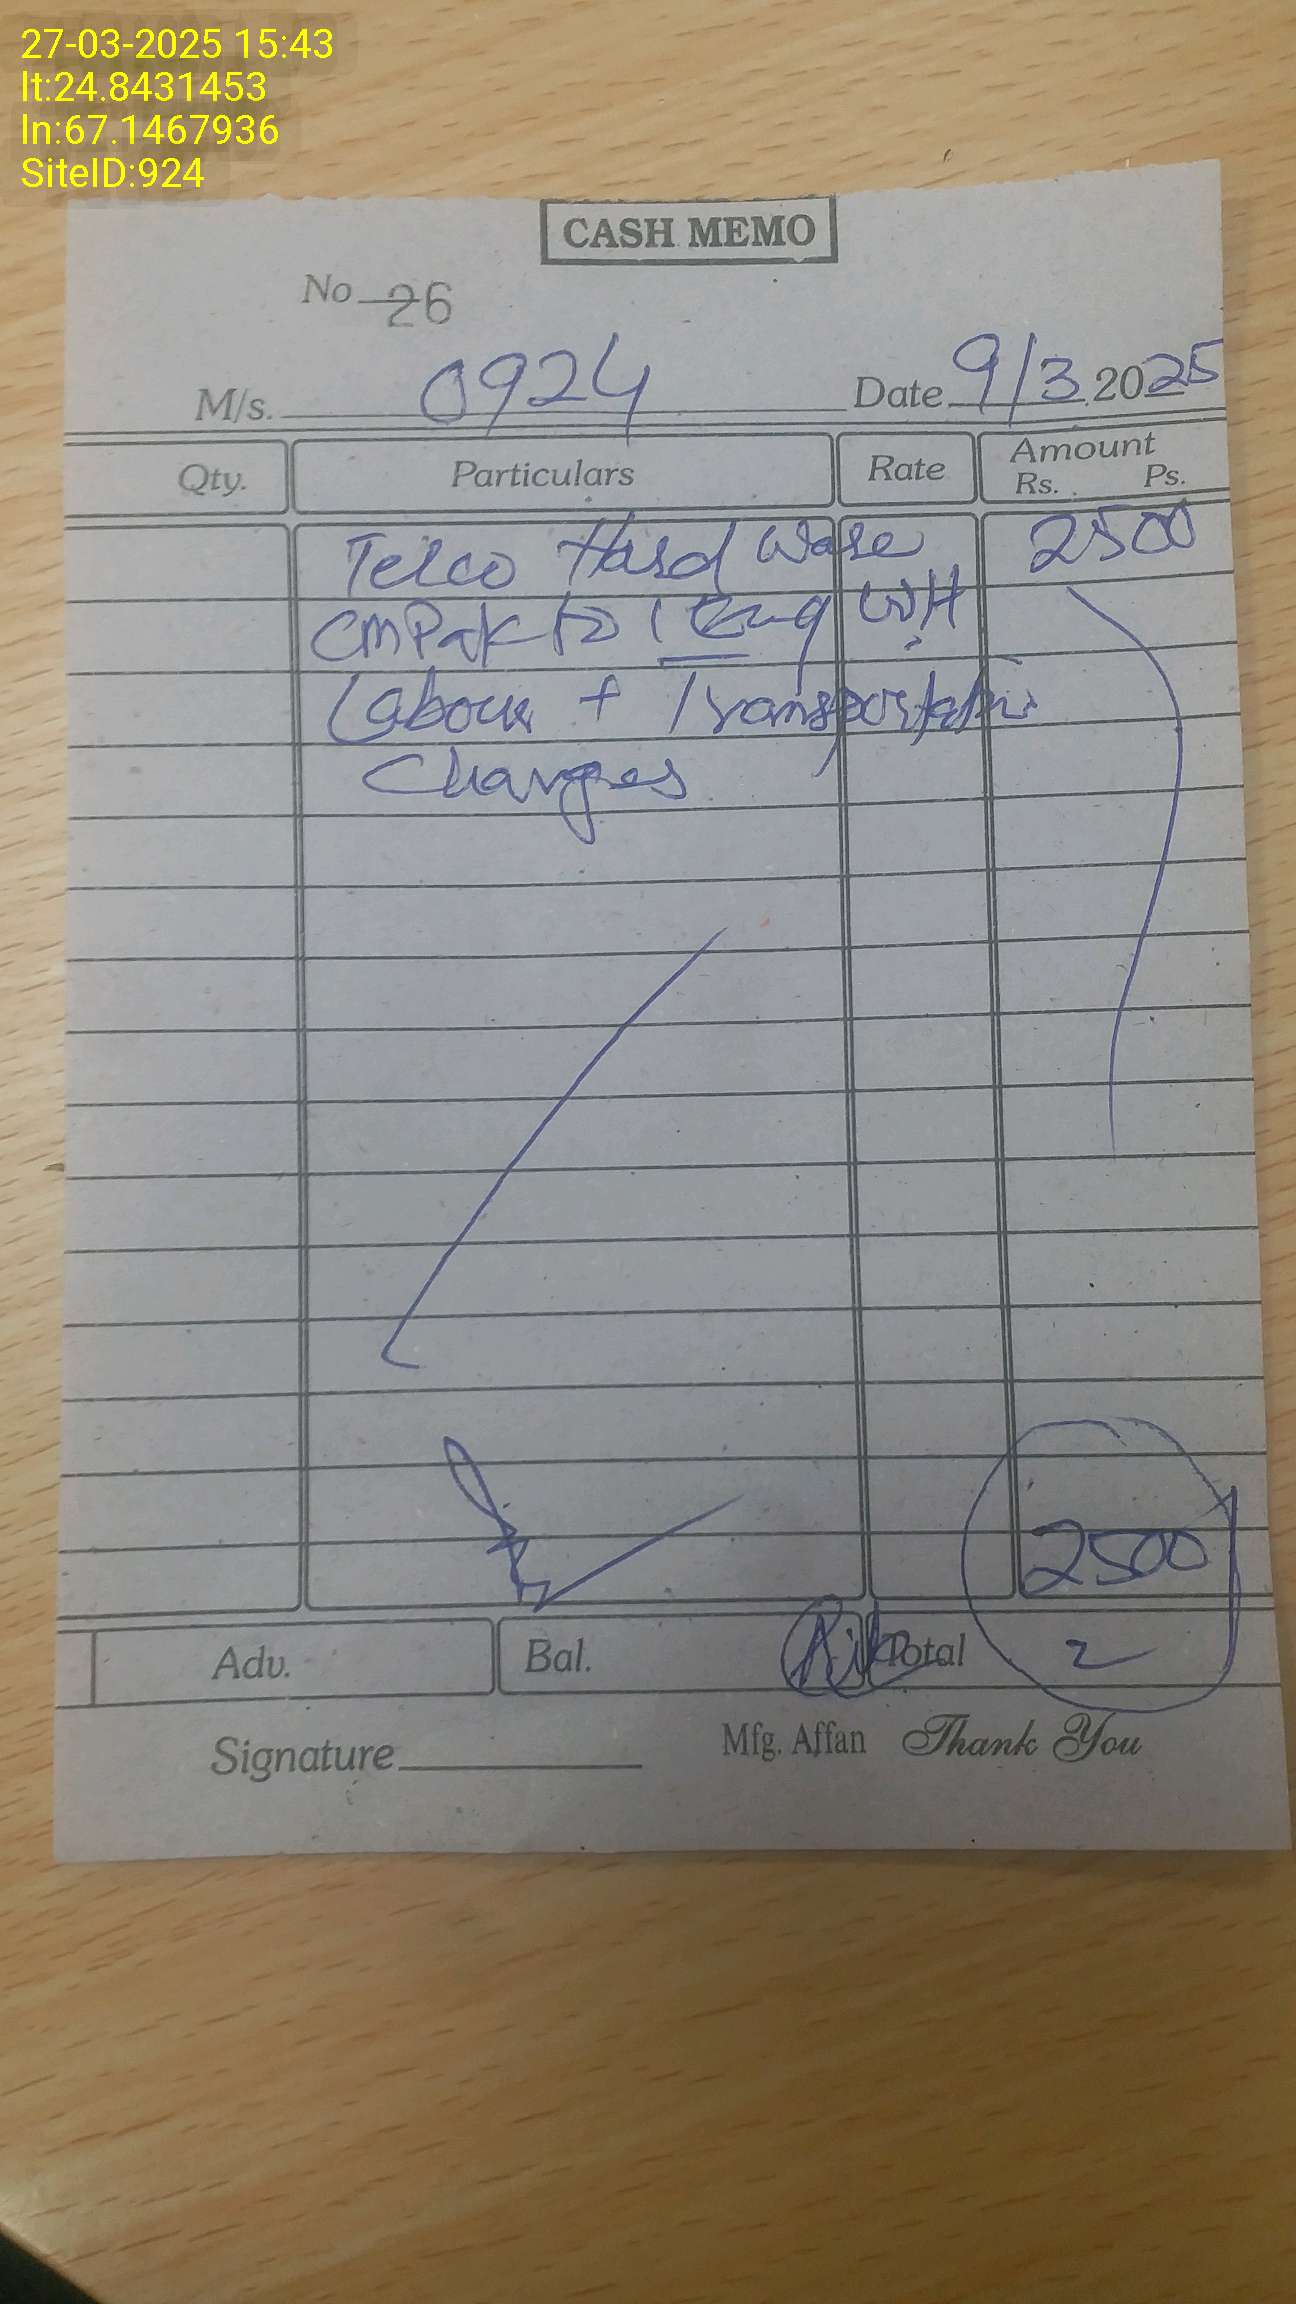 27-03-2025 15:43
lt:24.8431453
ln:67.1467936
SiteID:924
CASH MEMO
No 26
M/s. 0924 Date 9/3 2025
Qty. Particulars Rate Amount Rs. Ps.
Telco Hard Ware 2500
CMPak to WH
Labour + Transportation
Charges
2500
Adv. Bal. Total
Signature Mfg. Affan Thank You